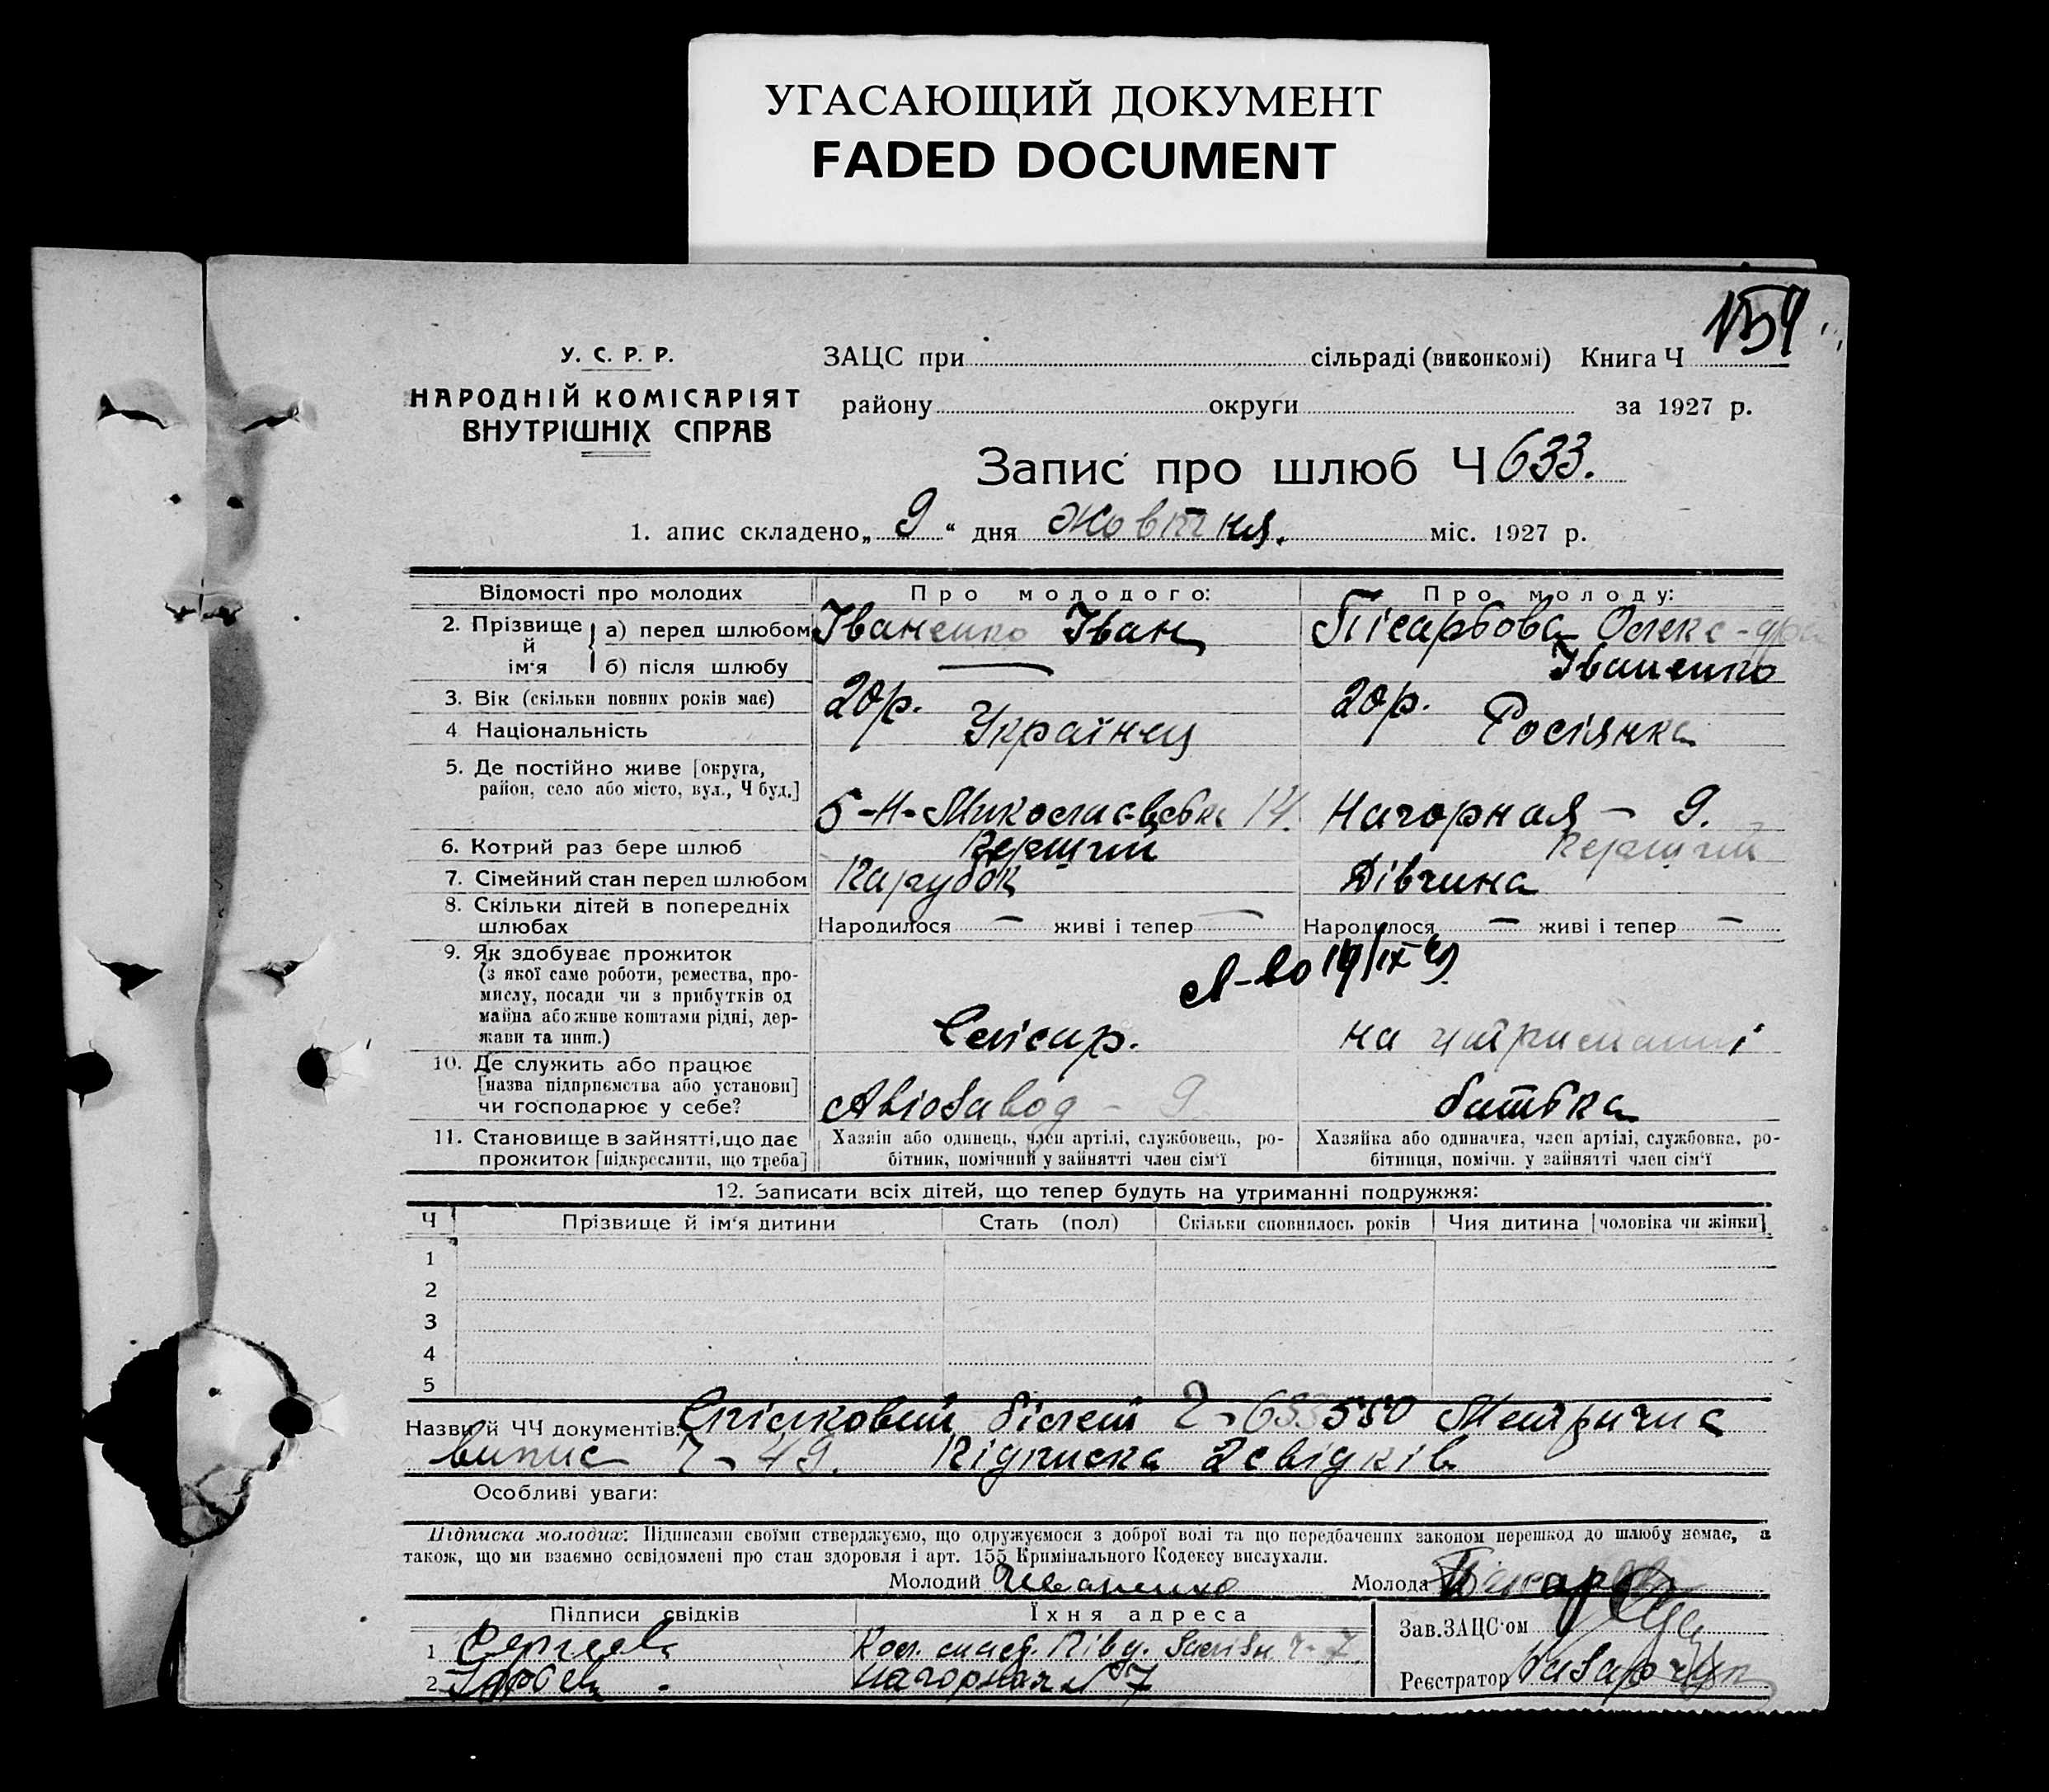 УГАСАЮЩИЙ ДОКУМЕНТ
FADED DOCUMENT
У. С. Р. Р.
НАРОДНІЙ КОМІСАРІЯТ
ВНУТРІШНІХ СПРАВ
ЗАЦС при сільраді (виконкомі) Книга Ч
району округи за 1927 р.
Запис про шлюб Ч 633.
1. апис складено „ 9 “ дня Жовтня. міс. 1927 р.
Відомості про молодих Про молодого: Про молоду:
2. Прізвище й ім'я а) перед шлюбом Іваненко Іван Пісарєва Олекс-дра
б) після шлюбу — Іваненко
3. Вік (скільки повних років має) 20р. 20р.
4 Національність Українец Росіянка
5. Де постійно живе [округа,
район, село або місто, вул., Ч буд.] Б-Н-Миколаєвська 14. Нагорная – 9.
6. Котрий раз бере шлюб Перший Перший
7. Сімейний стан перед шлюбом Парубок Дівчина
8. Скільки дітей в попередніх
шлюбах Народилося — живі і тепер — Народилося — живі і тепер —
9. Як здобуває прожиток
(з якої саме роботи, ремества, про-
мислу, посади чи з прибутків од
майна або живе коштами рідні, дер-
жави та инш.) Слісар. на утриманні
10. Де служить або працює
[назва підприємства або установи]
чи господарює у себе? Авіозавод – 9 батька
11. Становище в зайнятті, що дає
прожиток [підкреслити, що треба]
Хазяін або одинець, член артілі, службовець, ро-
бітник, помічний у зайнятті член сім'ї
Хазяйка або одиначка, член артілі, службовка, ро-
бітниця, помічн. у зайнятті член сім'ї
12. Записати всіх дітей, що тепер будуть на утриманні подружжя:
Ч Прізвище й ім'я дитини Стать (пол) Скільки сповнилось років Чия дитина [чоловіка чи жінки]
1
2
3
4
5
Назви й ЧЧ документів: Спілковий білет Метрична
випис Ч- 49. Підписка 2 свідків
Особливі уваги:
Підписка молодих: Підписами своїми стверджуємо, що одружуємося з доброї волі та що передбачених законом перешкод до шлюбу немає, а
також, що ми взаємно освідомлені про стан здоровля і арт. 155 Кримінального Кодексу вислухали.
Молодий Иваненко Молода
Підписи свідків Їхня адреса
Зав.ЗАЦС'ом
1
2 Нагорная №7
Реєстратор